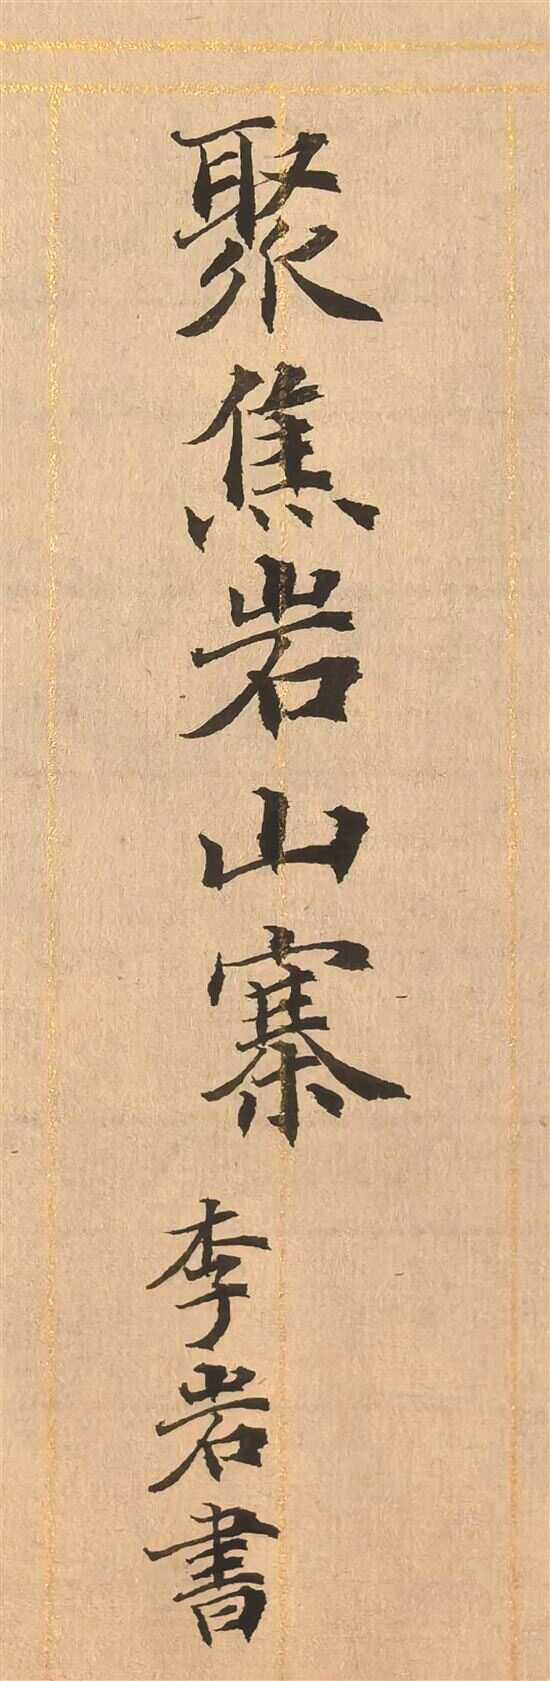 聚焦岩山寨
李岩書